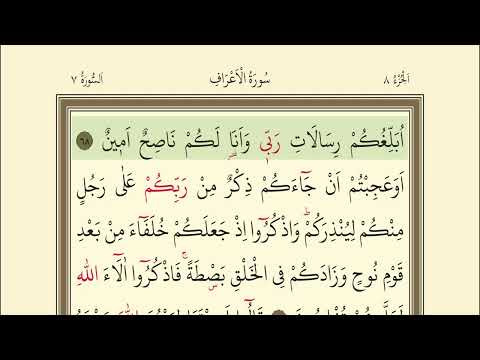 اَلْجُزْءُ ٨ سُورَةُ الْاَعْرَافِ اَلسُّورَةُ ٧
اُبَلِّغُكُمْ رِسَالَاتِ رَبّ۪ي وَاَنَا۬ لَكُمْ نَاصِحٌ اَم۪ينٌ ٦٨
اَوَعَجِبْتُمْ اَنْ جَٓاءَكُمْ ذِكْرٌ مِنْ رَبِّكُمْ عَلٰى رَجُلٍ
مِنْكُمْ لِيُنْذِرَكُمْۜ وَاذْكُرُٓوا اِذْ جَعَلَكُمْ خُلَفَٓاءَ مِنْ بَعْدِ
قَوْمِ نُوحٍ وَزَادَكُمْ فِي الْخَلْقِ بَصْۣطَةًۚ فَاذْكُرُٓوا اٰلَٓاءَ اللّٰهِ